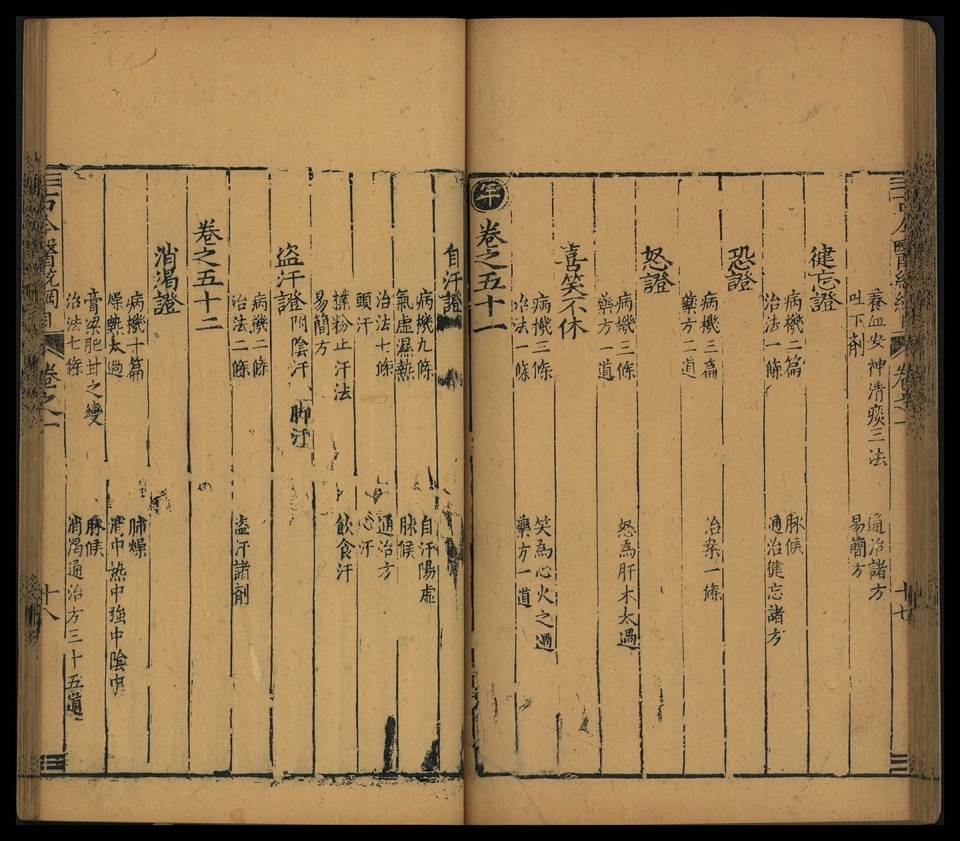 養血安神清痰三法 通治諸方
吐下劑 易簡方
健忘證
病機二篇 脉候
治法一條 通治健忘諸方
恐證
病機三篇 治案一條
藥方二道
怒證
病機三條 怒為肝木太過
藥方一道
喜笑不休
病機三條 笑為心火之過
治法一條 藥方一道
卷之五十一
自汗證
病機九條 自汗陽虛
氣虛濕熱 脉候
治法七條 通治方
頭汗 心汗
撲粉止汗法 飲食汗
易簡方
盜汗證 陰汗 脚汗
病機二條
治法二條 盜汗諸劑
卷之五十二
消渴證
病機十篇 肺燥
燥藥太過 消中熱中強中陰中
膏梁肥甘之變 脉候
治法七條 消渴通治方三十五道
古今醫統 卷之一 十八